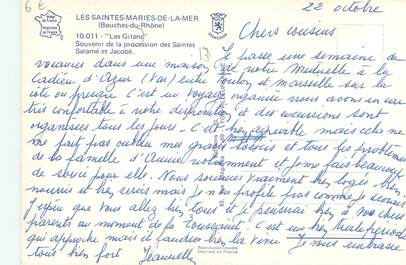 6 €
22 octobre
LES SAINTES-MARIES-DE-LA-MER
(Bouches-du-Rhône)
10.011 - "Les Gitans"
Souvenir de la procession des Saintes
Salomé et Jacobé.
13
Chers cousins
Je passe une semaine de
vacances dans une maison de notre Mutuelle à la
Cadière d'Azur (Var) entre Toulon et Marseille sur la
côte ou presque c'est un voyage organisé nous avons un car
très confortable à notre disposition et des excursions sont
organisées tous les jours. C'est bien agréable mais cela ne
me fait pas oublier mes gros et tous les problèmes
de la famille notamment et je me fais beaucoup
de souci pour elle. Nous sommes vraiment bien logés bien
nourris et bien servis mais je n'en profite pas comme je devrais
J'espère que vous allez bien tous et je penserai bien à nos chers
parents au moment de la Toussaint. C'est une bien triste période
qui approche mais il faudra bien la vivre Je vous embrasse
tous bien fort Jeannette